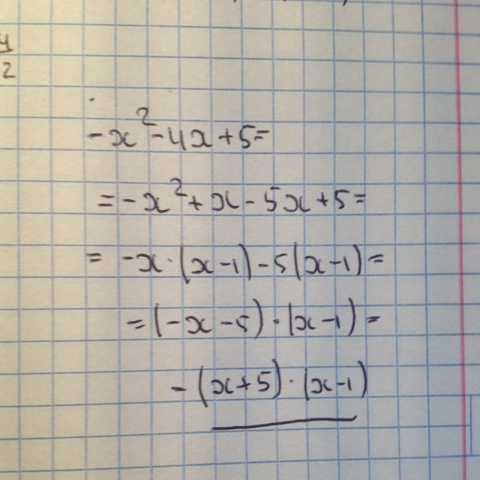 4
2
-x²-4x+5=
=-x²+x-5x+5=
= -x·(x-1)-5(x-1)=
=(-x-5)·(x-1)=
-(x+5)·(x-1)